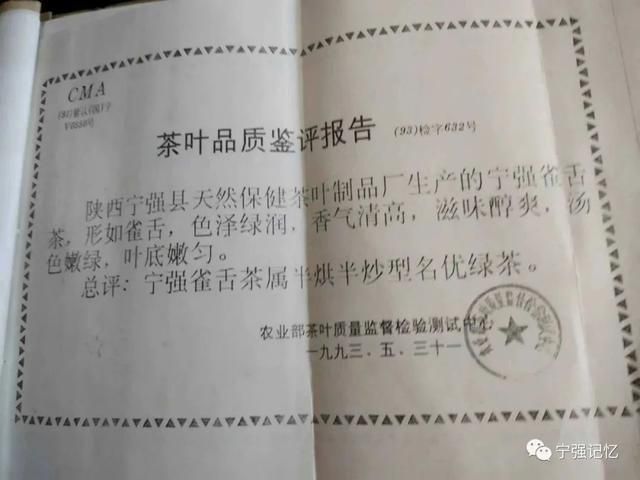 CMA
茶叶品质鉴评报告
(93)检字632号
陕西宁强县天然保健茶叶制品厂生产的宁强雀舌
茶，形如雀舌，色泽绿润，香气清高，滋味醇爽，汤
色嫩绿，叶底嫩匀。
总评：宁强雀舌茶属半烘半炒型名优绿茶。
农业部茶叶质量监督检验测试中心
一九九三．五．三十一
宁强记忆